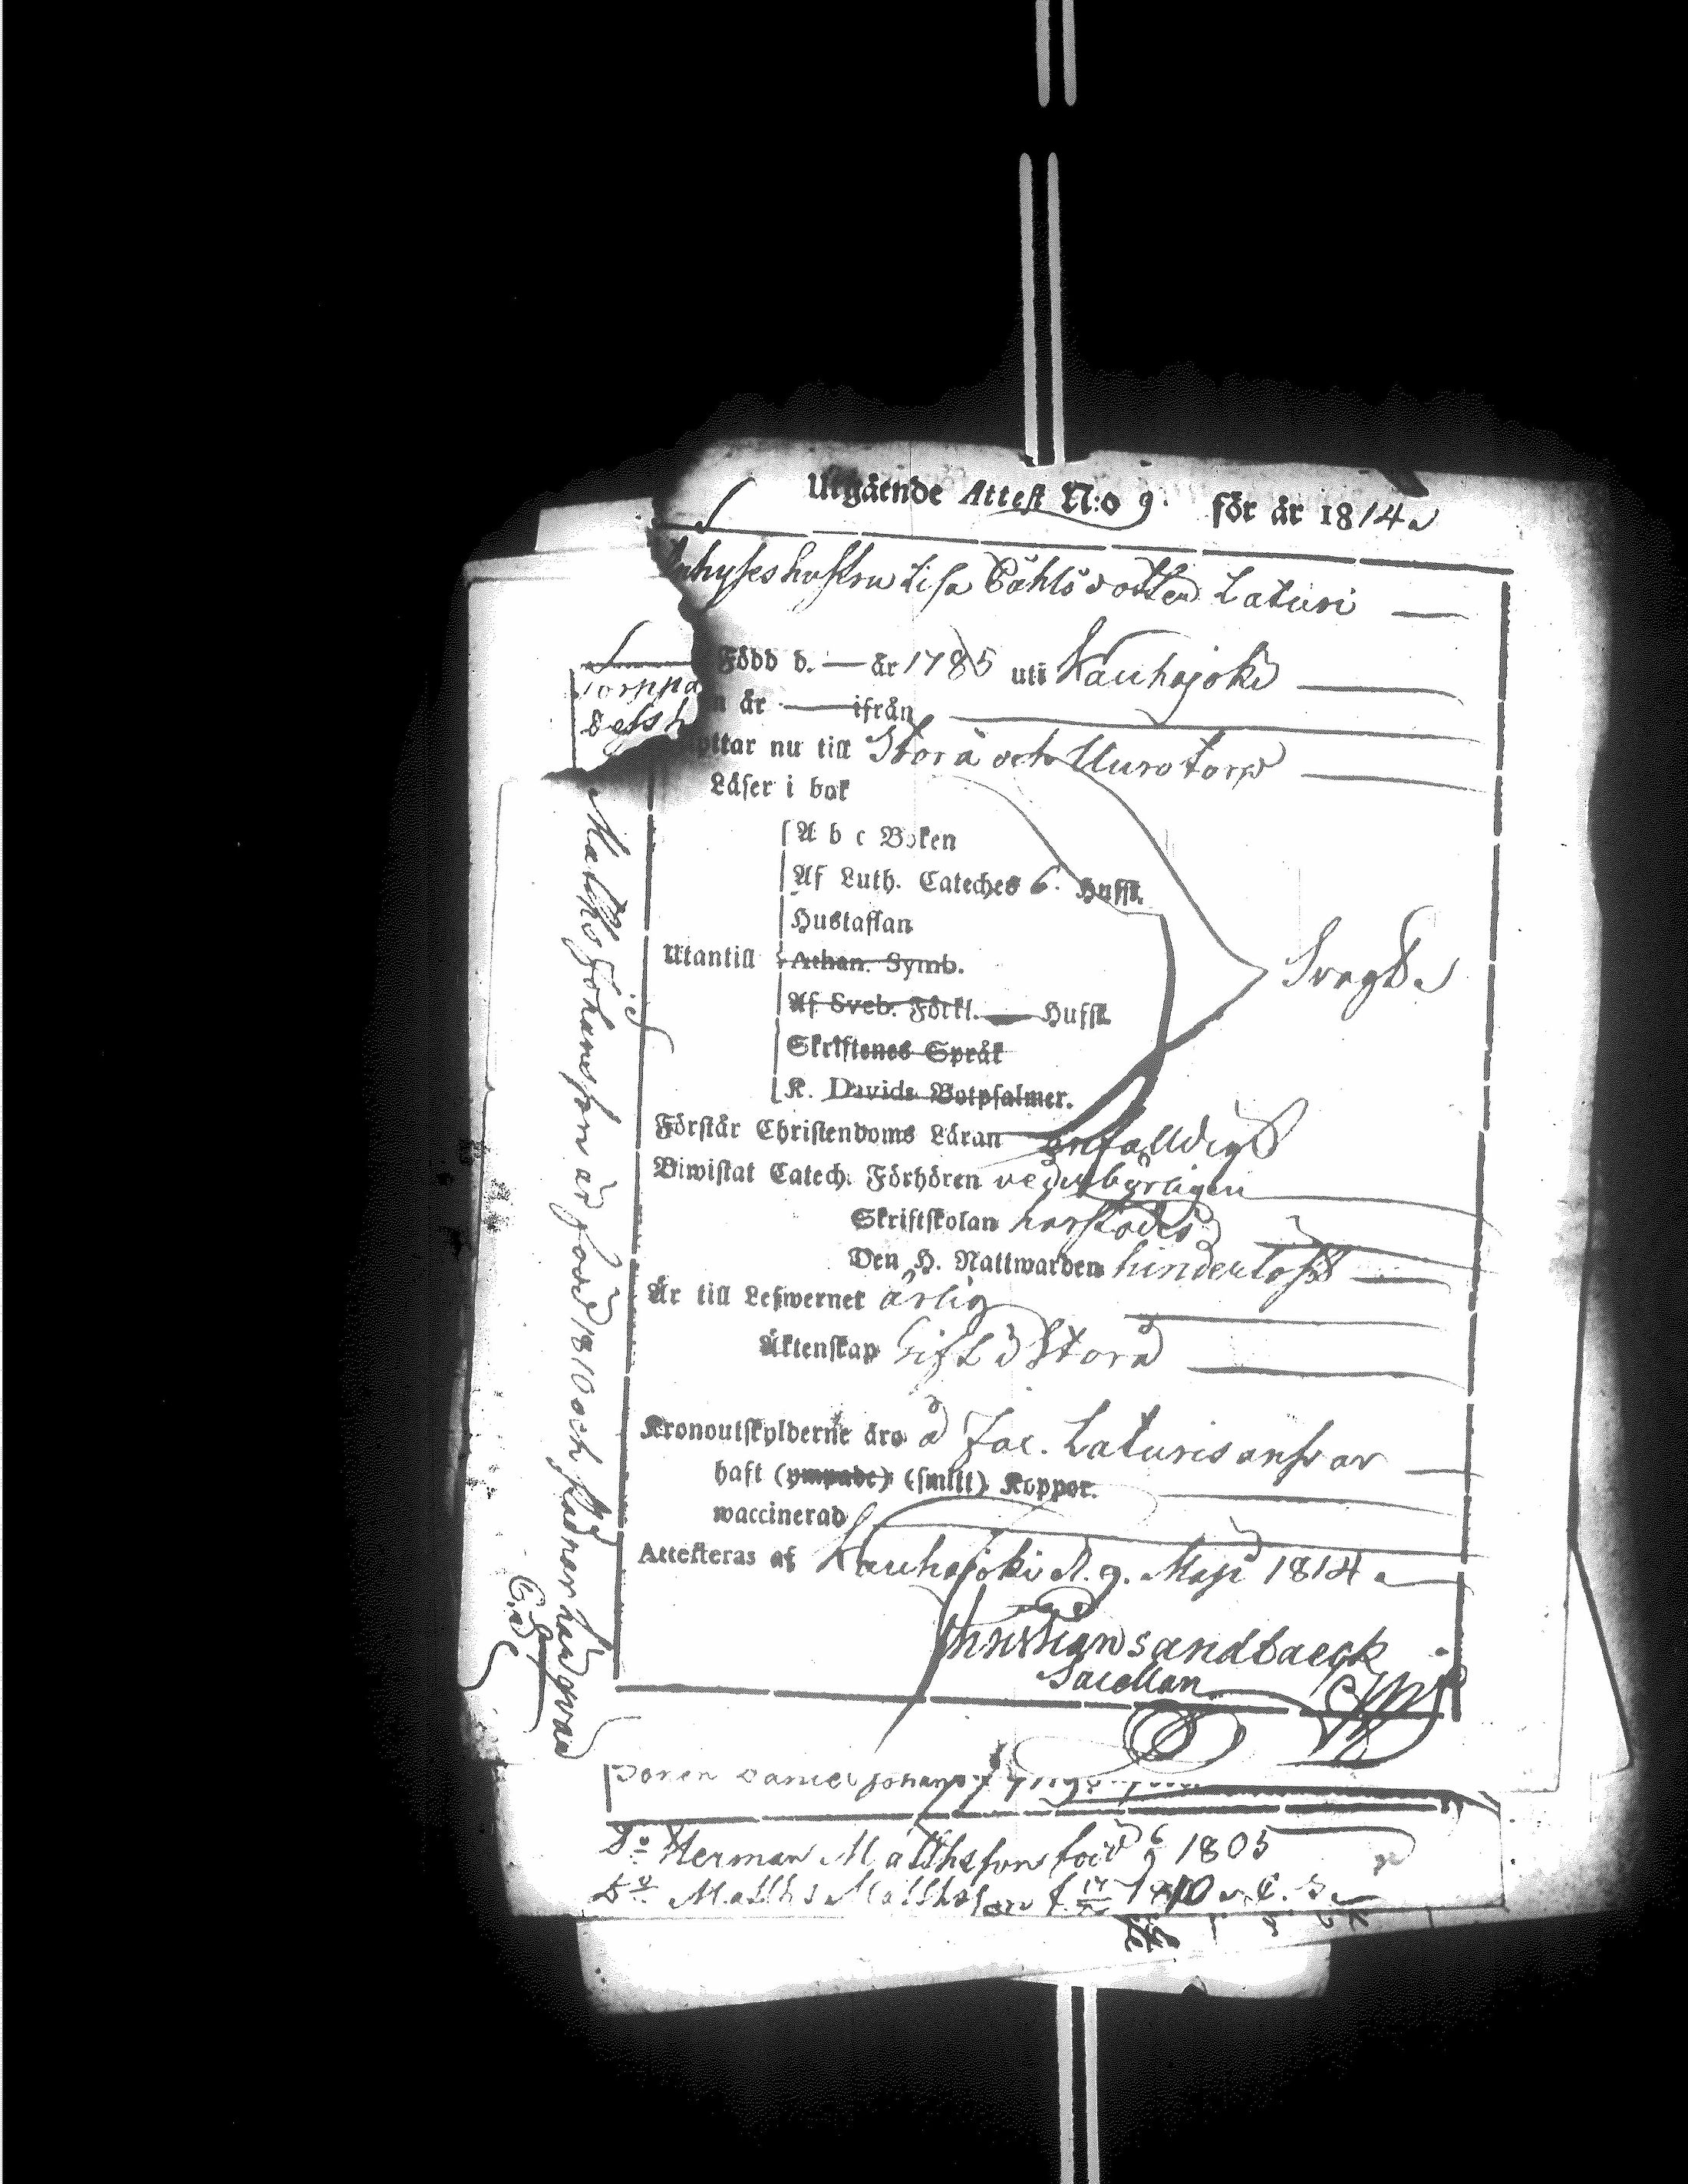 Utgående Attest N:o 9. för år 1814
hustru Lisa Påhlsdotter Laturi
Född d. — år 1785 uti Kauhajoki
n år — ifrån
torppa
dess h
yttar nu till Storå och Uuro torp
Läser i bok
A b c Boken
Af Luth. Cateches 6. Hufst.
Hustaflan
Utantill
Athan. Symb.
Af Sveb. Förkl. — Hufst.
Skriftenes Språk
K. Davids Botpsalmer.
Svagt
Förstår Christendoms Läran enfalldigt
Biwistat Catech. Förhören vederbörligen
Skriftskolan härstädes
Den H. Nattwarden hinderlöst
Är till Lefwernet ärlig
Äktenskap Gift i Storå
Kronoutskylderne äro å Jac. Laturis ansvar
haft (ympade) (smitt) Koppor.
waccinerad
Attesteras af Kauhajoki d. 9. Maji 1814
Christian Sandbaeck
Sacellan
Matths Johansson är född 1810 och
Sonen Daniel Johanss
Do Herman Matthsson född 1805
Do Matths Matthsson f. 1810